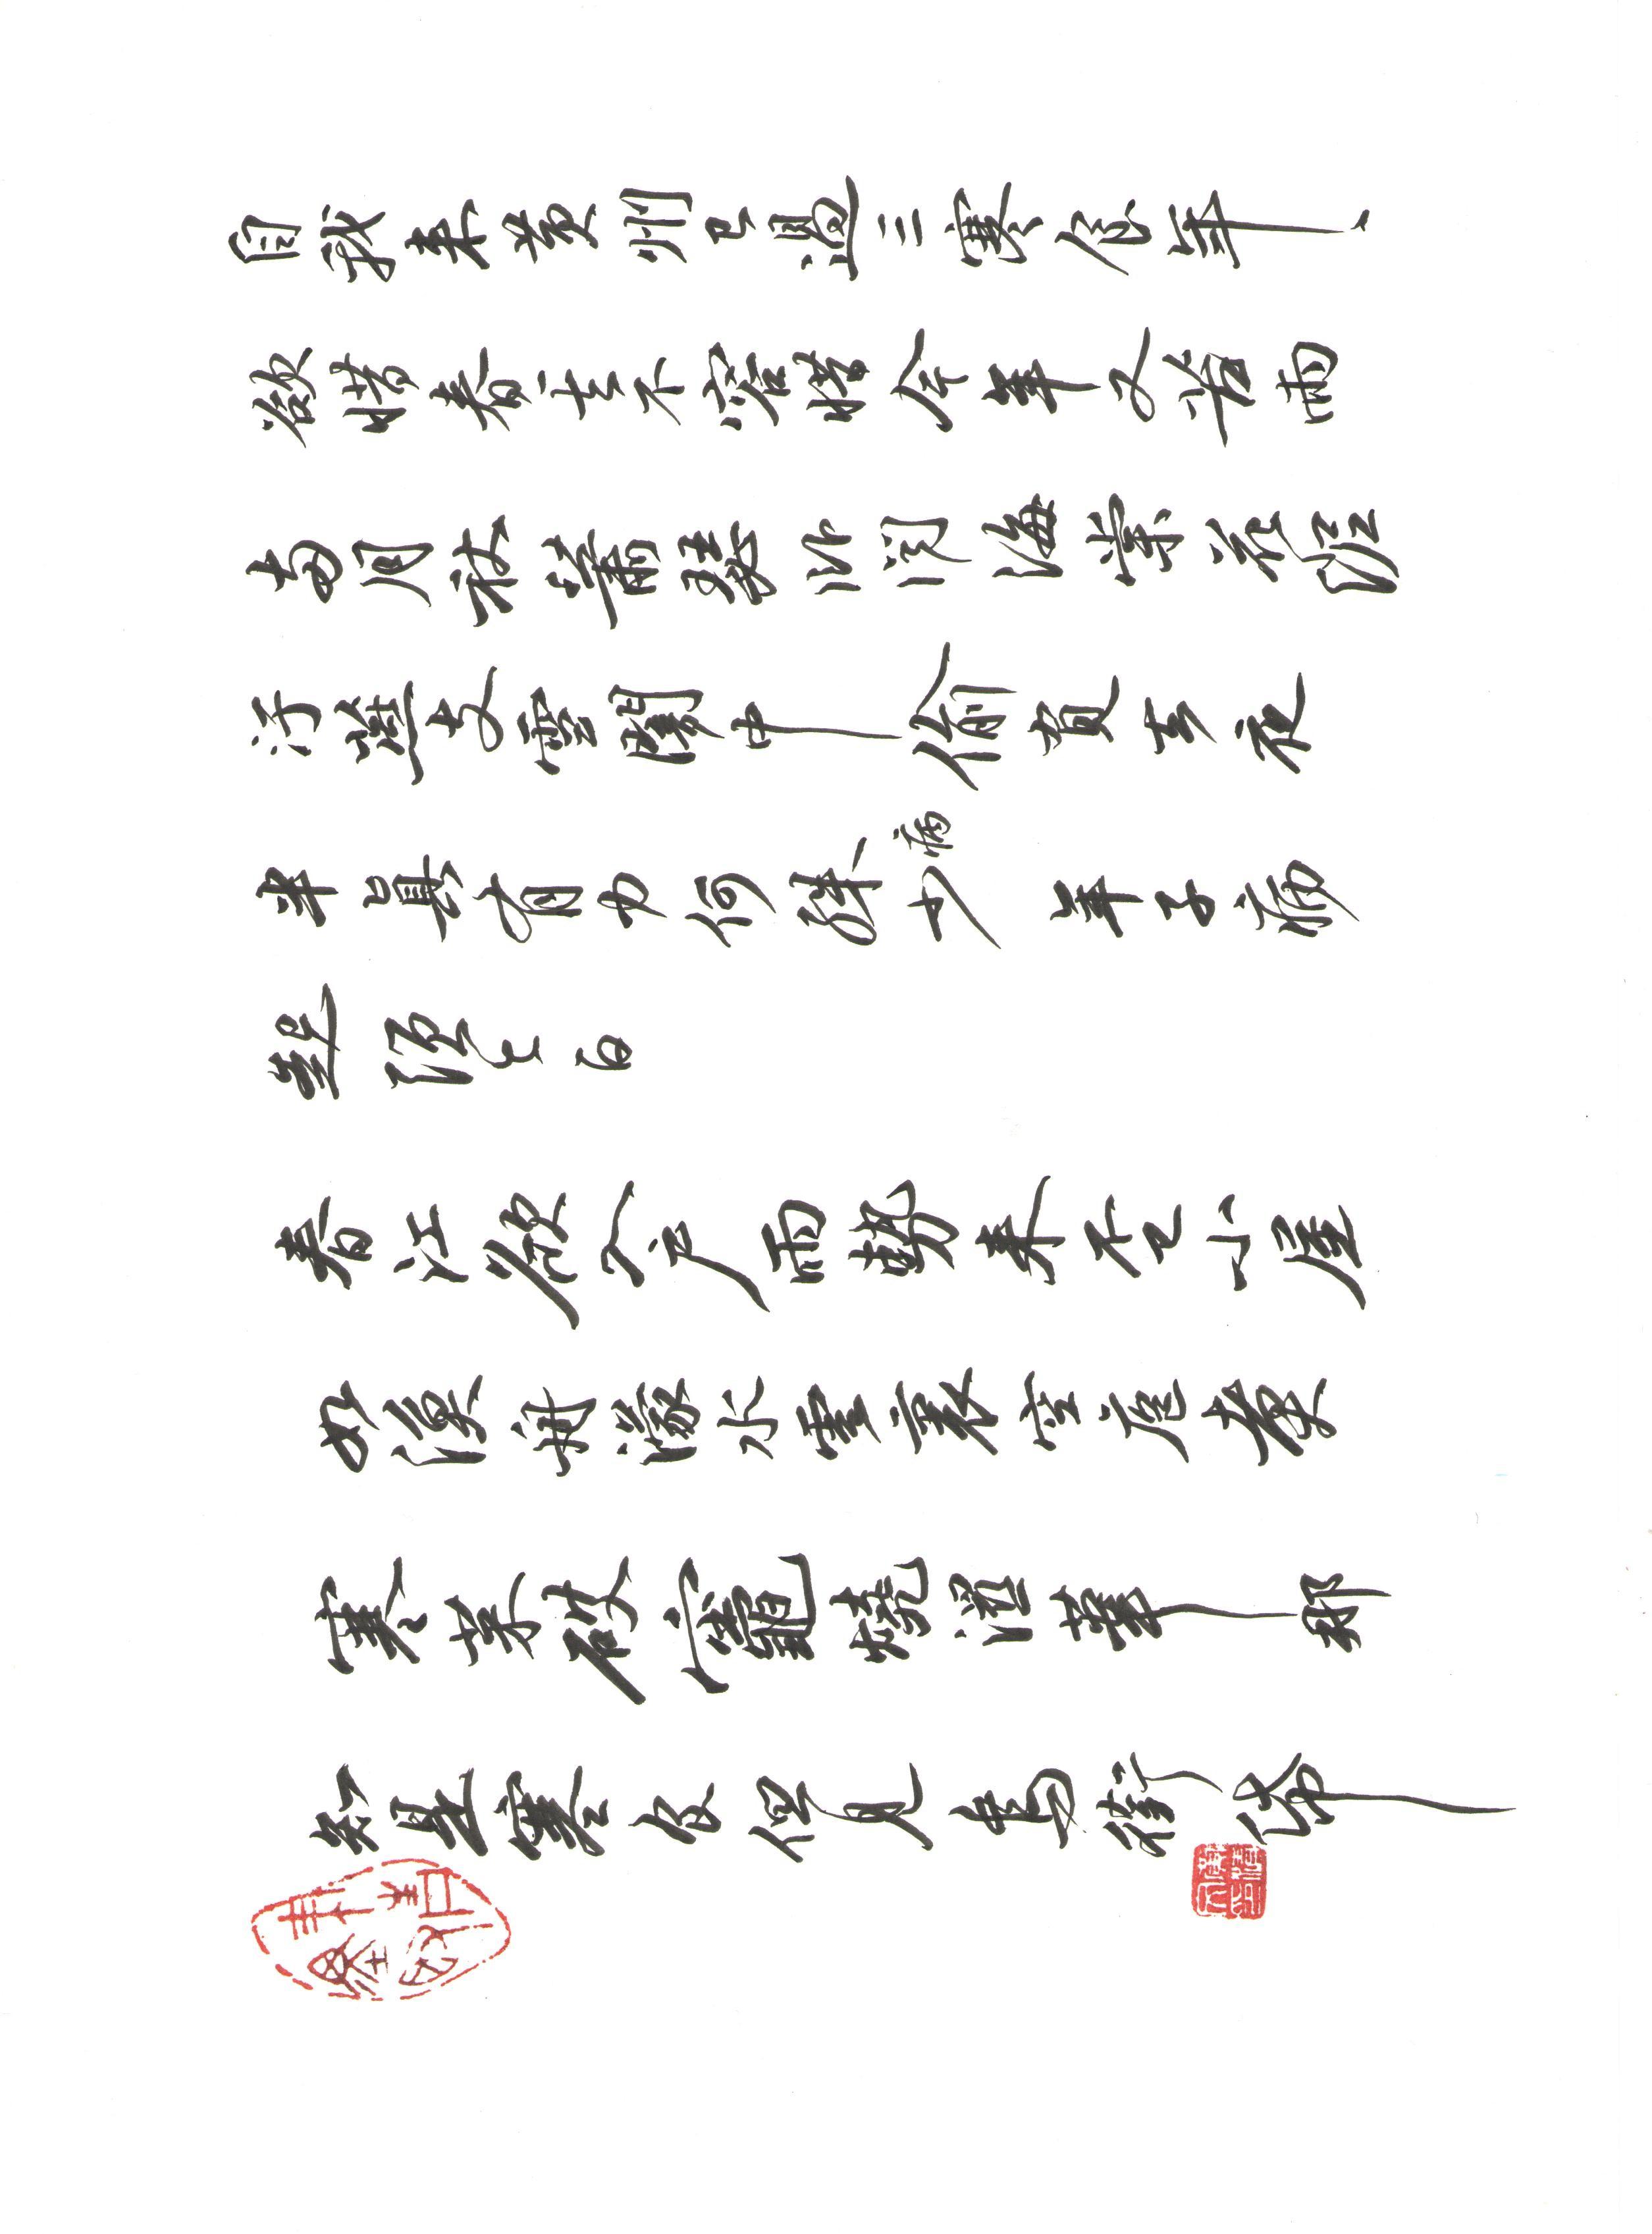 自我来黄州已過三寒食年〻
欲惜春〻去不容惜今年又苦雨
兩月秋蕭瑟卧聞海棠花泥
汙燕支雪闇中偷負去夜
半真有力何殊病少年子病
起頭已白
春江欲入户雨勢来不已小屋
如漁舟濛水雲裏空庖煮
寒菜破竈燒濕葦那
知是寒食但見烏銜帋